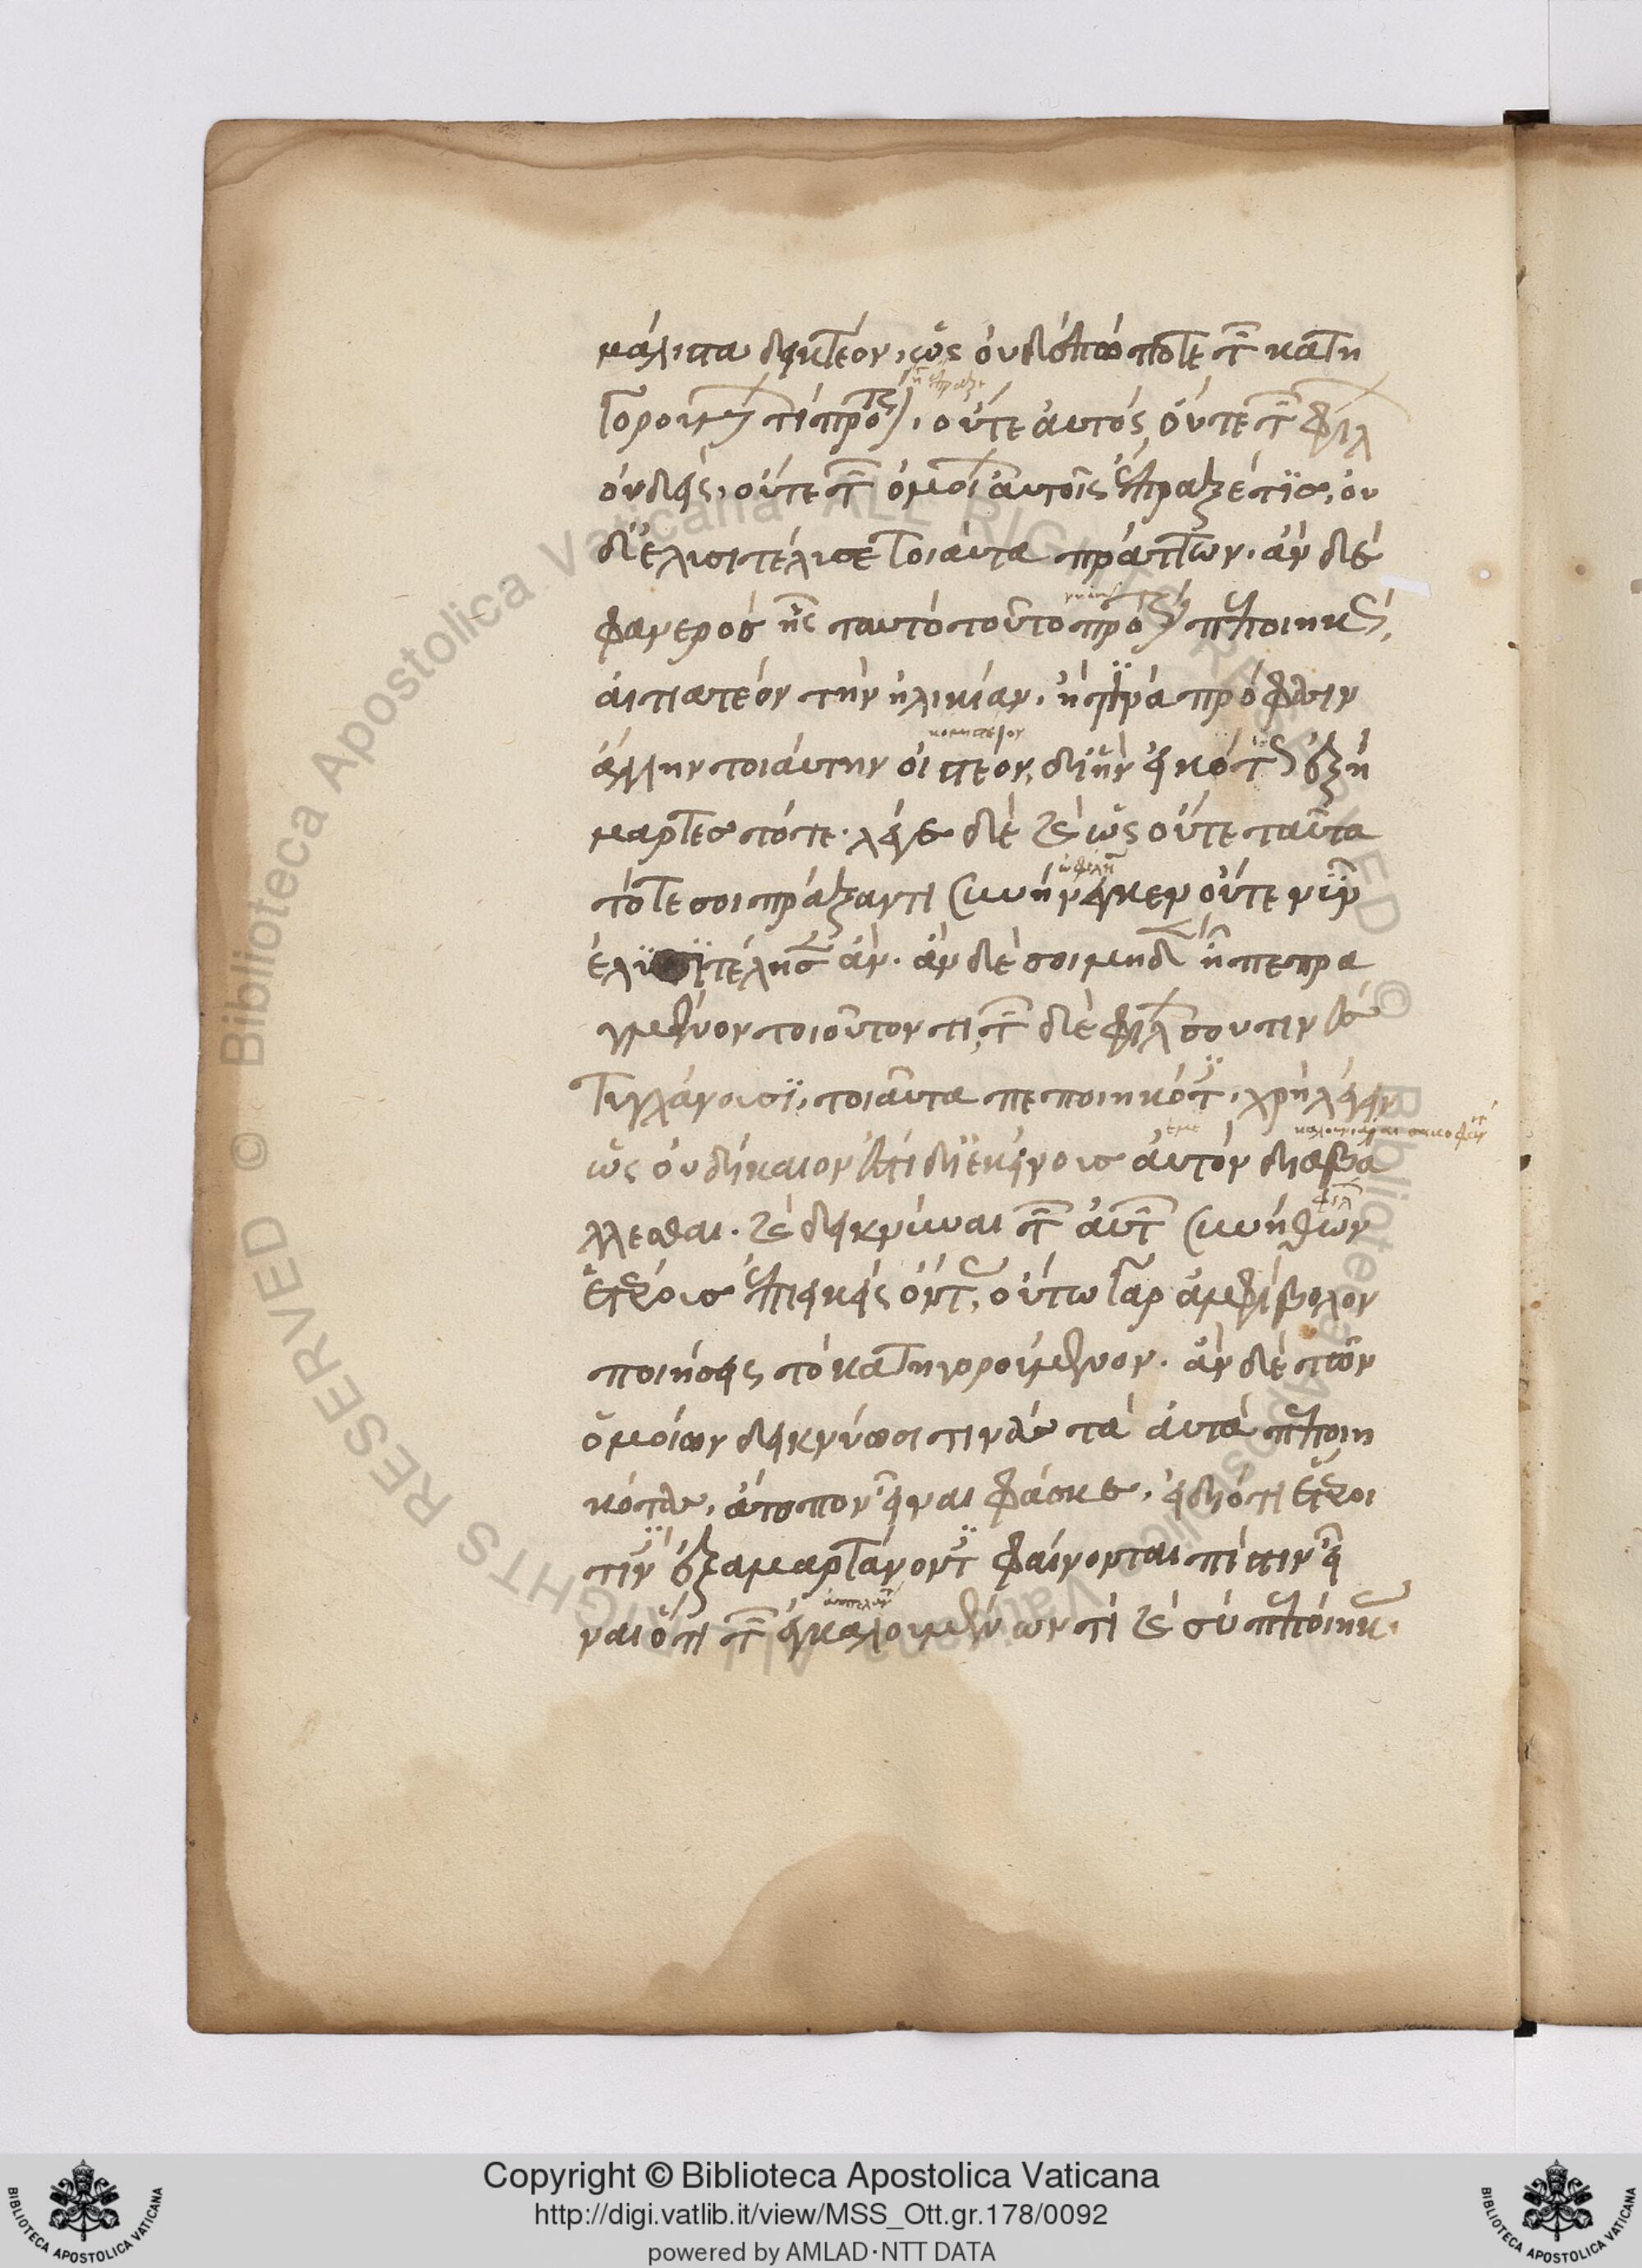 μάλιστα δεικτέον, ὡς οὐδεπώποτε τῶν κατη
γορουμένων τι πρότερον. οὔτε αὐτὸς οὔτε τῶν φίλων
οὐδεὶς, οὔτε τῶν ὁμοίων αὐτοῖς ἔπραξέ τις, οὐ
δ' ἐλυσιτέλησε τοιαῦτα πράττων. ἂν δὲ
φανερὸς ᾖς ταυτὸ τοῦτο πρότερον πεποιηκὼς,
αἰτιατέον τὴν ἡλικίαν. ἢ παρὰ πρόφασιν
ἄλλην τοιαύτην οἰστέον, δι' ἣν εἰκότως ἐξή
μαρτες τότε. λέγε δὲ καὶ ὡς οὔτε ταῦτα
τότε σοι πράξαντι συνήνεγκεν οὔτε νῦν
ἐλυσιτέλησεν ἄν. ἂν δὲ σοι μηδὲν ᾖ πεπρα
γμένον τοιοῦτον τι, τῶν δὲ φίλων σου τινὲς
τυγχάνουσι, τοιαῦτα πεποιηκότες, χρὴ λέγειν
ὡς οὐ δίκαιον ἐστὶ δι' ἐκείνους αὐτὸν διαβα
λλεσθαι. καὶ δεικνύναι τῶν αὐτῶν συνήθων
ἑτέρους ἐπιεικεῖς ὄντας, οὕτω γὰρ ἀμφίβολον
ποιήσεις τὸ κατηγορούμενον. ἂν δὲ τῶν
ὁμοίων δεικνύωσι τινὰς τὰ αὐτὰ πεποιη
κότας, ἄτοπον εἶναι φάσκε, εἰ διότι ἕτεροι
τινὲς ἐξαμαρτάνοντες φαίνονται πίστιν εἶ
ναι ὅτι τῶν ἐγκαλουμένων τι καὶ σὺ πεποίηκας.
Copyright © Biblioteca Apostolica Vaticana
http://digi.vatlib.it/view/MSS_Ott.gr.178/0092
powered by AMLAD·NTT DATA
BIBLIOTECA APOSTOLICA VATICANA
BIBLIOTECA APOSTOLICA VATICANA